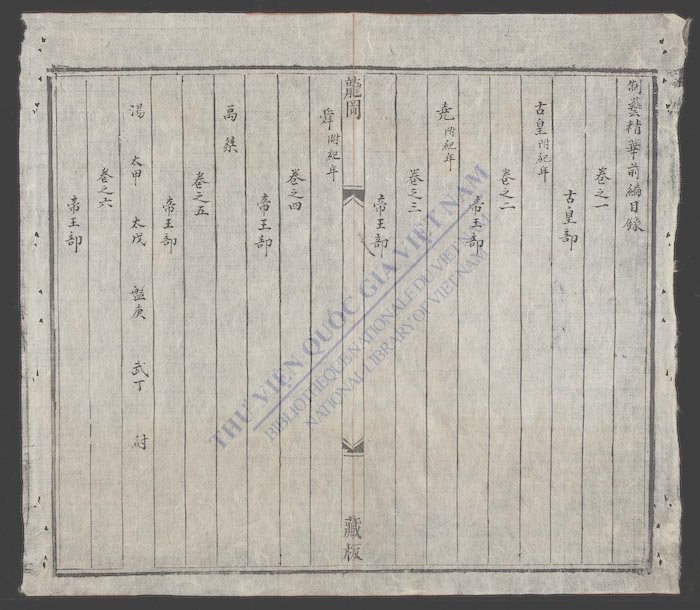 制藝精華前編目錄
卷之一
古皇部
古皇 附紀年
卷之二
帝王部
堯 附紀年
卷之三
帝王部
龍岡
藏板
舜 附紀年
卷之四
帝王部
禹 桀
卷之五
帝王部
湯 太甲 太戊 盤庚 武丁 紂
卷之六
帝王部
THƯ VIỆN QUỐC GIA VIỆT NAM
BIBLIOTHÈQUE NATIONALE DU VIETNAM
NATIONAL LIBRARY OF VIETNAM